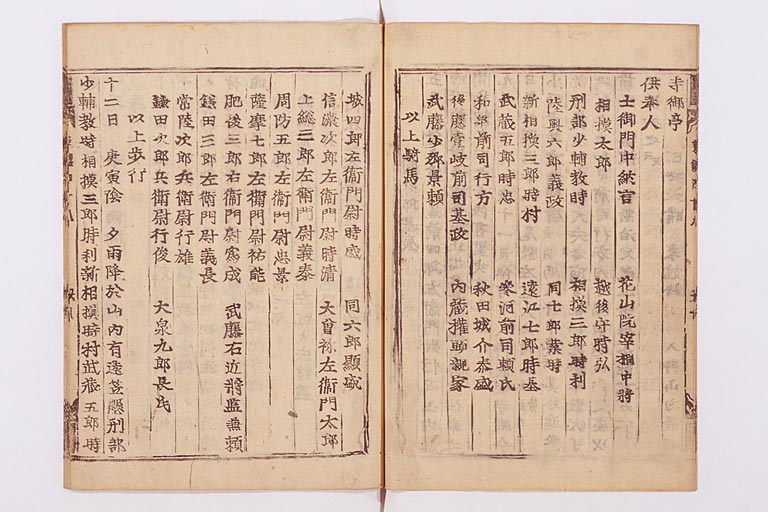 寺御亭
供奉人
土御門中納言 花山院宰相中将
相摸太郎 越後守時弘
刑部少輔教時 相摸三郎時利
陸奥六郎義政 同七郎業時
新相摸三郎時村 遠江七郎時基
武蔵五郎時忠 駿河前司頼氏
和泉前司行方 秋田城介泰盛
後藤壹岐前司基政 内蔵権助親家
武藤少卿景頼
以上騎馬
城四郎左衛門尉時盛 同六郎顕盛
信濃次郎左衛門尉時清 大曾祢左衛門太郎
上総三郎左衛門尉義泰
周防五郎左衛門尉忠景
薩摩七郎左衛門尉祐能
肥後三郎右衛門尉為成 武藤右近将監兼頼
鎌田三郎左衛門尉義長
常陸次郎兵衛尉行雄
鎌田次郎兵衛尉行俊 大泉九郎長氏
以上歩行
十二日 庚寅陰 夕雨降於山内有遠笠懸刑部
少輔教時相摸三郎時利新相摸時村武蔵五郎時